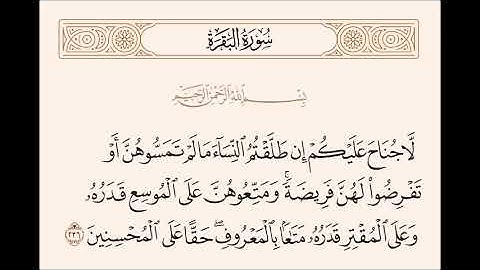 سُورَةُ البَقَرَةِ
بِسْمِ اللَّهِ الرَّحْمَٰنِ الرَّحِيمِ
لَّا جُنَاحَ عَلَيْكُمْ إِن طَلَّقْتُمُ النِّسَآءَ مَا لَمْ تَمَسُّوهُنَّ أَوْ
تَفْرِضُوا۟ لَهُنَّ فَرِيضَةً ۚ وَمَتِّعُوهُنَّ عَلَى الْمُوسِعِ قَدَرُهُۥ
وَعَلَى الْمُقْتِرِ قَدَرُهُۥ مَتَٰعًۢا بِالْمَعْرُوفِ ۖ حَقًّا عَلَى الْمُحْسِنِينَ ٢٣٦